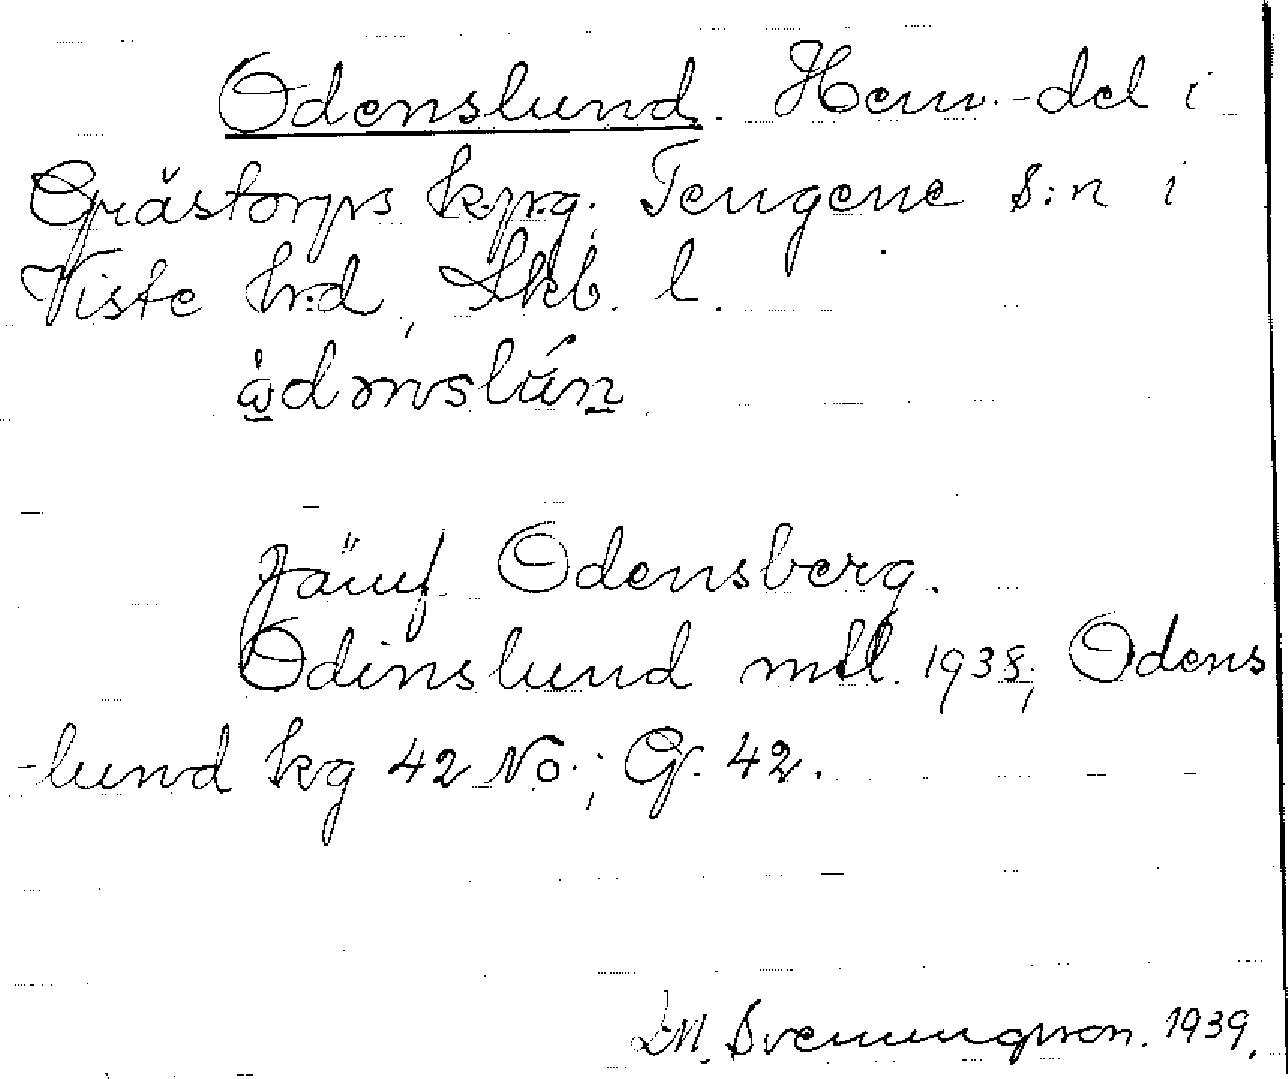 Odenslund. Hem.-del i
Grästorps kpg. Tengene s:n i
Viste hd, Skb. l.
ådənslún
Jämf Odensberg.
Odinslund mtl. 1938; Odens
-lund kg 42 No.; G. 42.
Svenungsson. 1939.